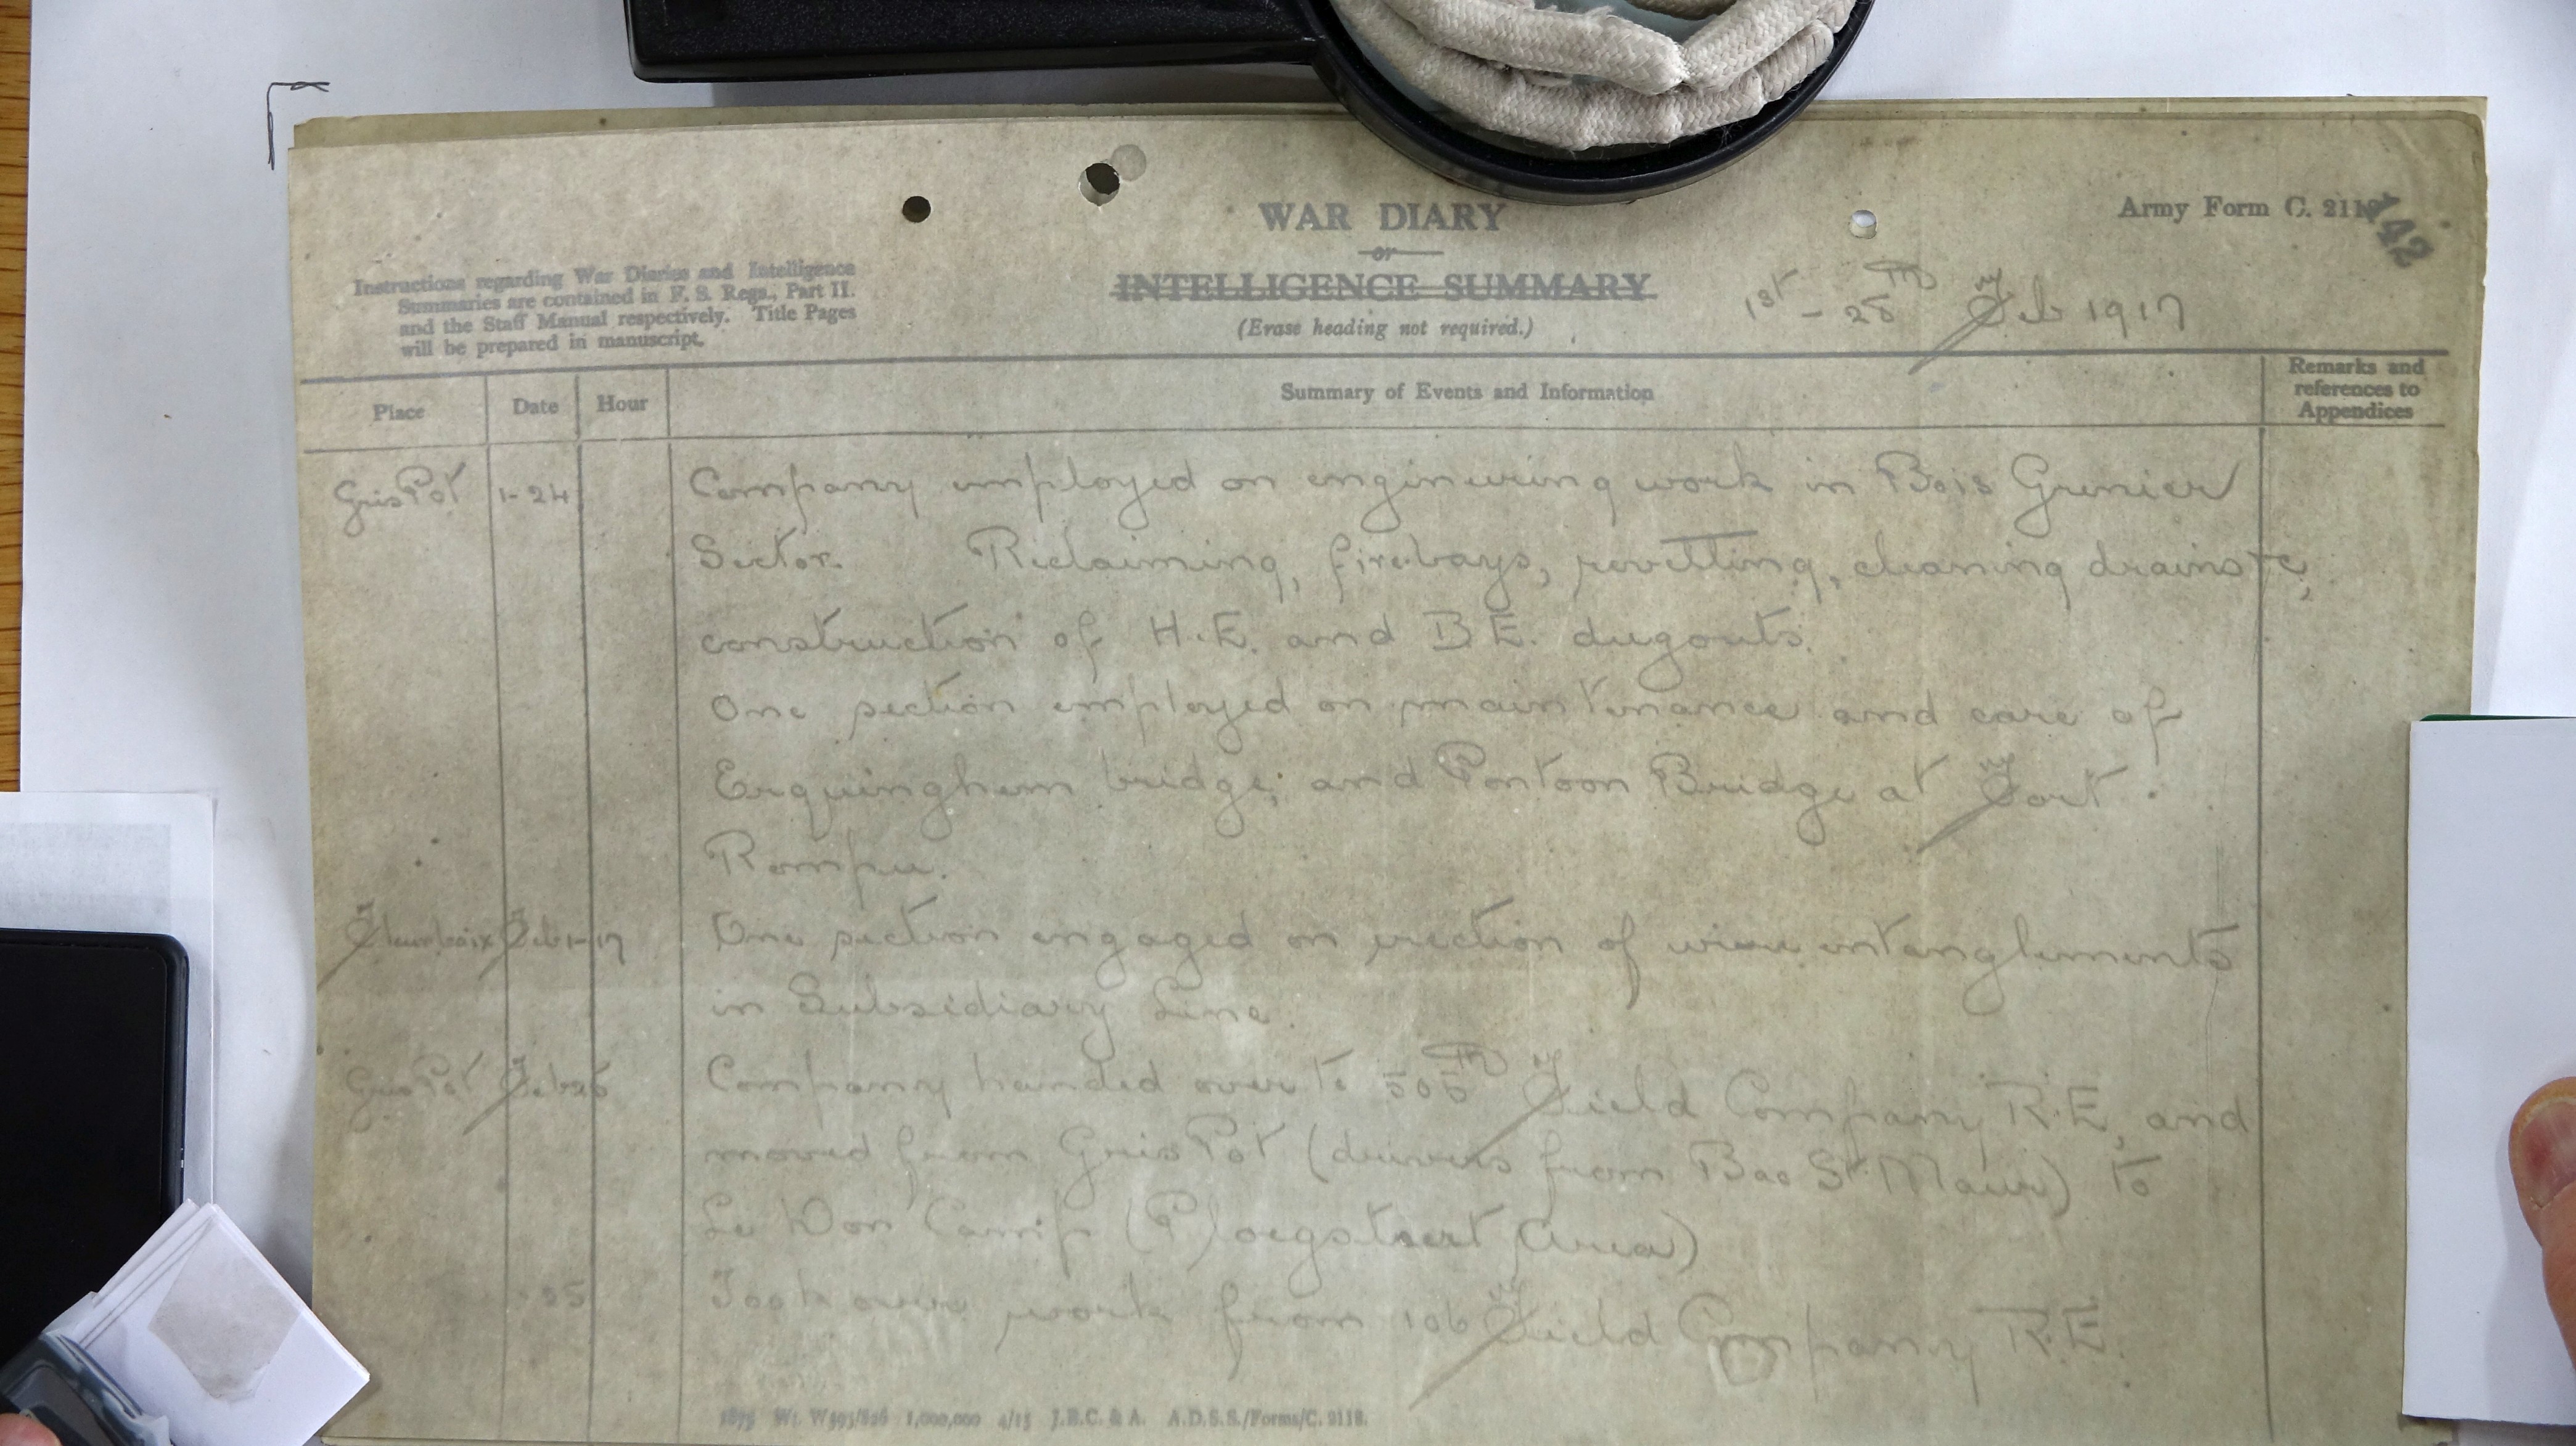 WAR DIARY
or
INTELLIGENCE SUMMARY
(Erase heading not required.)
Army Form C. 2118
142
Instructions regarding War Diaries and Intelligence
Summaries are contained in F. S. Regs., Part II.
and the Staff Manual respectively. Title Pages
will be prepared in manuscript.
1st - 28th Feb 1917
Place Date Hour Summary of Events and Information Remarks and
references to
Appendices
Gris Pot 1-24 Company employed on engineering work in Bois Grenier
Sector. Reclaiming, firebays, revetting, cleaning drains &c,
construction of H.E. and B.E. dugouts.
One section employed on maintenance and care of
Erquinghem bridge; and Pontoon Bridge at Fort
Rompu.
Fleurbaix Feb 1-17 One section engaged on erection of wire entanglements
in Subsidiary Line.
Gris Pot Feb 25 Company handed over to Field Company R.E, and
moved from Gris Pot (drivers from Bac St Maur) to
Le Don Camp (Ploegsteert Area)
25 Took over work from 106 Field Company R.E.
1875 Wt. W593/826 1,000,000 4/15 J.B.C. & A. A.D.S.S./Forms/C. 2118.